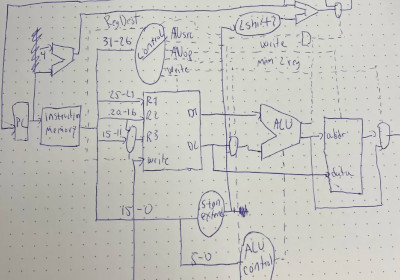 RegDest
31-26
Control
ALUsrc
ALUop
write
2shift2
write
mem2reg
D
4
PC
Instruction
Memory
25-21
20-16
15-11
R1
R2
R3
write
D1
D2
ALU
addr
data
15-0
Sign
extend
5-0
ALU
control